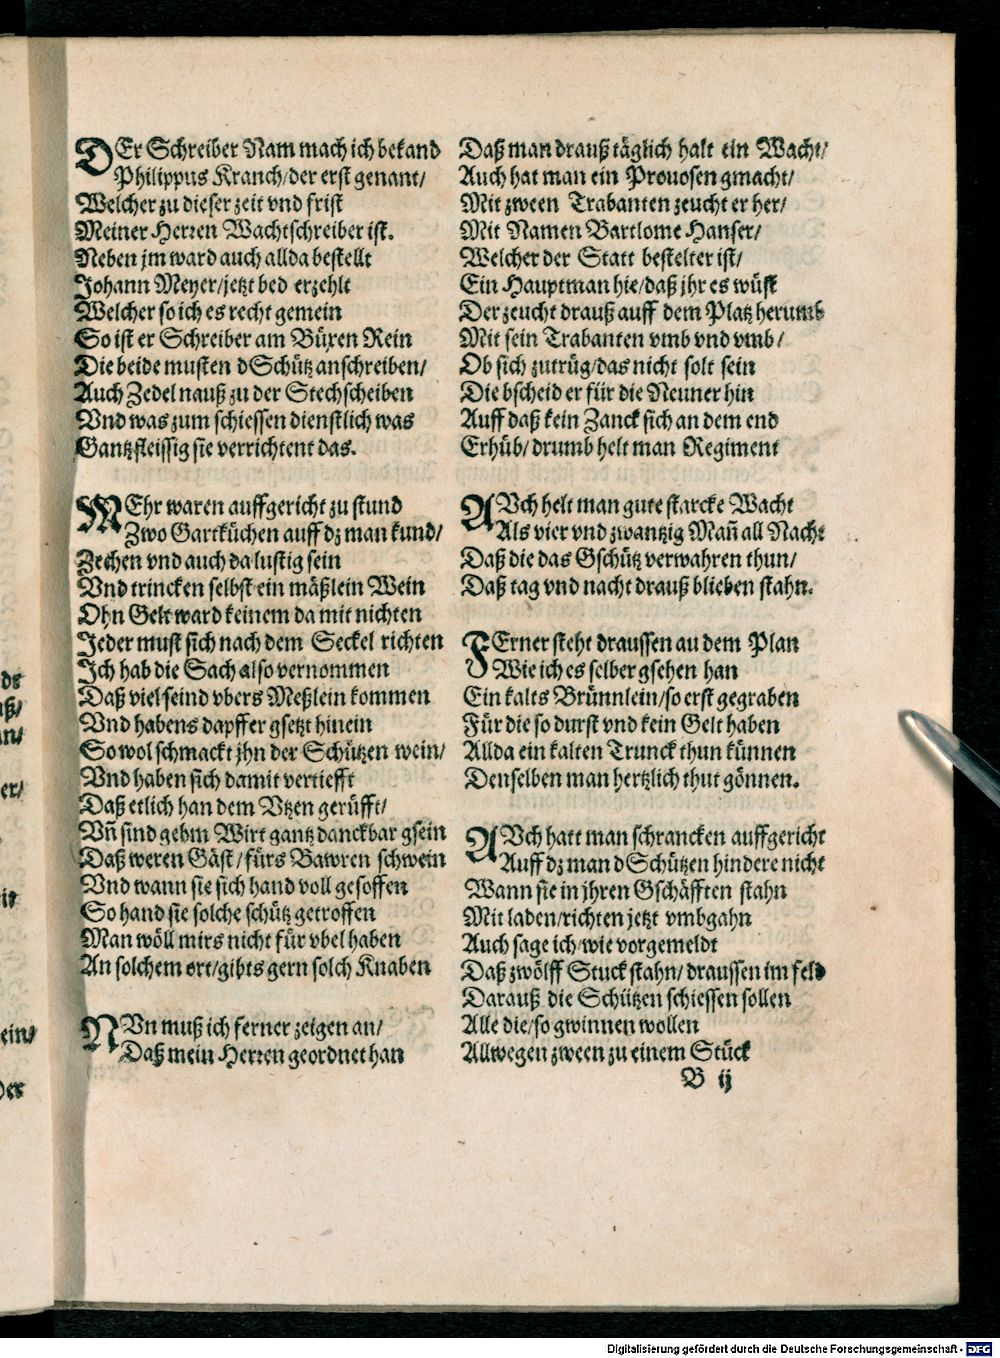 DEr Schreiber Nam mach ich bekand
Philippus Kranch/der erst genant/
Welcher zu dieser zeit vnd frist
Meiner Herren Wachtschreiber ist.
Neben jm ward auch allda bestellt
Johann Meyer/jetzt bed erzehlt
Welcher so ich es recht gemein
So ist er Schreiber am Büxen Rein
Die beide musten dSchütz anschreiben/
Auch Zedel nauß zu der Stechscheiben
Vnd was zum schiessen dienstlich was
Gantz fleissig sie verrichtent das.
MEhr waren auffgericht zu stund
Zwo Gartküchen auff dz man kund/
Zechen vnd auch da lustig sein
Vnd trincken selbst ein mäßlein Wein
Ohn Gelt ward keinem da mit nichten
Jeder must sich nach dem Seckel richten
Ich hab die Sach also vernommen
Daß viel seind vbers Meßlein kommen
Vnd habens dapffer gsetzt hinein
So wol schmackt jhn der Schützen wein/
Vnd haben sich damit vertiefft
Daß etlich han dem Vtzen gerüfft/
Vñ sind gehm Wirt gantz danckbar gsein
Daß weren Gäst/fürs Bawren schwein
Vnd wann sie sich hand voll gesoffen
So hand sie solche schütz getroffen
Man wöll mirs nicht für vbel haben
An solchem ort/gibts gern solch Knaben
NVn muß ich ferner zeigen an/
Daß mein Herren geordnet han
Daß man drauß täglich halt ein Wacht/
Auch hat man ein Prouosen gmacht/
Mit zween Trabanten zeucht er her/
Mit Namen Bartlome Hanser/
Welcher der Statt bestelter ist/
Ein Hauptman hie/daß jhr es wüst
Der zeucht drauß auff dem Platz herumb
Mit sein Trabanten vmb vnd vmb/
Ob sich zutrüg/das nicht solt sein
Die bscheid er für die Neuner hin
Auff daß kein Zanck sich an dem end
Erhüb/drumb helt man Regiment
AVch helt man gute starcke Wacht
Als vier vnd zwantzig Mañ all Nacht
Daß die das Gschütz verwahren thun/
Daß tag vnd nacht drauß blieben stahn.
FErner steht draussen au dem Plan
Wie ich es selber gsehen han
Ein kalts Brünnlein/so erst gegraben
Für die so durst vnd kein Gelt haben
Allda ein kalten Trunck thun künnen
Denselben man hertzlich thut gönnen.
AVch hatt man schrancken auffgericht
Auff dz man dSchützen hindere nicht
Wann sie in jhren Gschäfften stahn
Mit laden/richten jetzt vmbgahn
Auch sage ich/wie vorgemeldt
Daß zwölff Stuck stahn/draussen im feld
Darauß die Schützen schiessen sollen
Alle die/so gwinnen wollen
Allwegen zween zu einem Stück
B ij
Digitalisierung gefördert durch die Deutsche Forschungsgemeinschaft - DFG